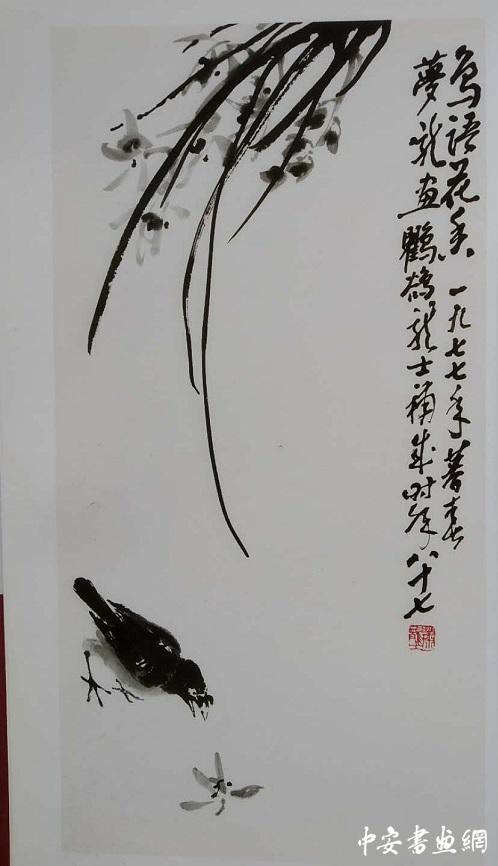 鸟语花香 一九七七年暮春
梦龙画鸜鹆龙士补成时年八十七
中安书画網